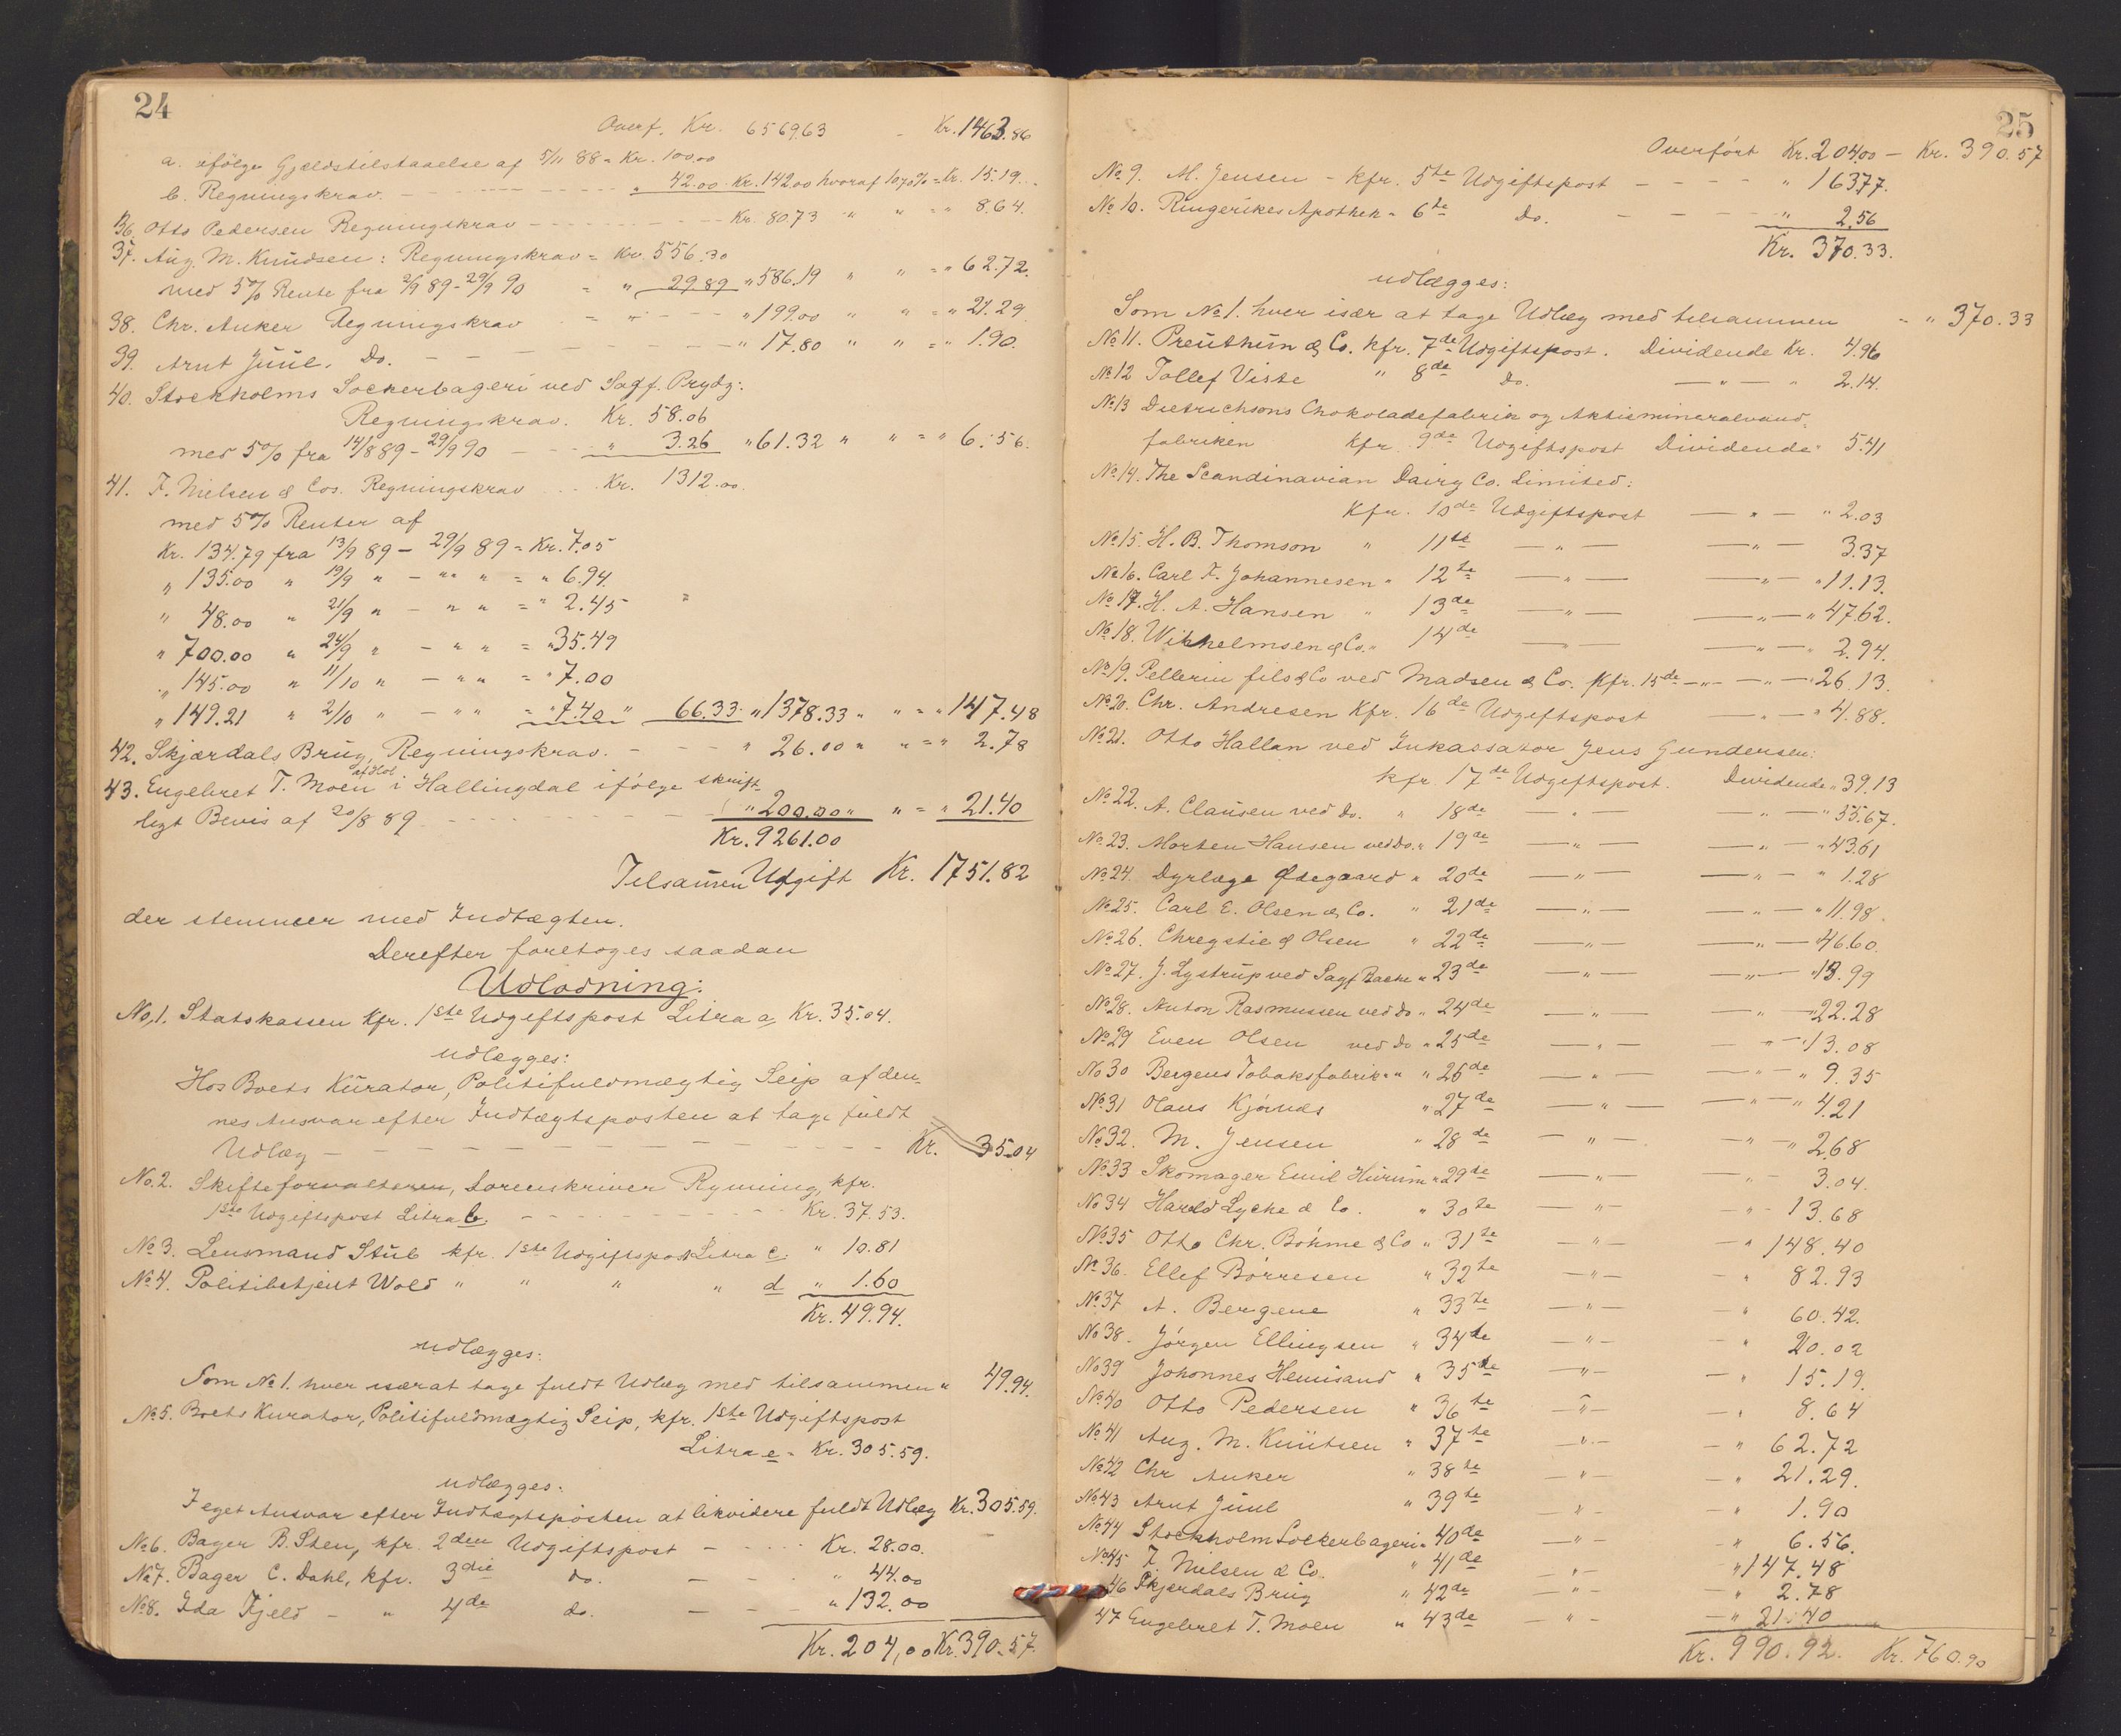 24
Overf. Kr. 6569.63 - Kr. 1463.86
a. ifølge Gjældstilstaaelse af 5/11 88 = Kr. 100.00
b. Regningskrav. - - - - " 42.00 Kr. 142.00 hvoraf 10.70% = Kr. 15.19.
36. Otto Pedersen Regningskrav - - - - Kr. 80.73 " " = " 8.64.
37. Aug. M. Knudsen: Regningskrav = Kr. 556.30
med 5% Rente fra 2/9 89 - 29/9 90 = " 29.89 " 586.19 " " = " 62.72.
38. Chr. Anker Regningskrav = " - - - " 199.00 " " = " 21.29
39. Arnt Juul. Do. - - - - " 17.80 " " = " 1.90.
40. Stockholms Sockerbageri ved Sagf. Prydz:
Regningskrav. Kr. 58.06
med 5% fra 14/8 89 - 29/9 90 - - " 3.26 " 61.32 " " = " 6.56.
41. F. Nielsen & Cos. Regningskrav - - Kr. 1312.00
med 5% Renter af
Kr. 134.79 fra 13/9 89 - 29/9 89 = Kr. 7.05
" 135.00 " 19/9 " - " " = " 6.94.
" 48.00 " 21/9 " - " " = " 2.45 "
" 700.00 " 24/9 " - " " = " 35.49
" 145.00 " 11/10 " - " " = " 7.00
" 149.21 " 2/10 " - " " = " 7.40 " 66.33. " 1378.33 " " = " 147.48
42. Skjærdals Brug, Regningskrav. - - - " 26.00 " " = " 2.78
43. Engebret T. Moen af Hol i Hallingdal ifølge skrift-
ligt Bevis af 20/8 89 - - - - " 200.00 " " = " 21.40
Kr. 9261.00
Tilsammen Udgift Kr. 1751.82
der stemmer med Indtægten.
Derefter foretoges saadan
Udlodning:
No. 1. Statskassen kfr. 1ste Udgiftspost Litra a, Kr. 35.04.
udlægges:
Hos Boets Kurator, Politifuldmægtig Seip af den-
nes Ansvar efter Indtægtsposten at tage fuldt
Udlæg - - - - Kr. 35.04
No. 2. Skifteforvalteren, Sorenskriver Rynning, kfr.
1ste Udgiftspost Litra b. - - - - Kr. 37.53.
No 3. Lensmand Stub kfr. 1ste Udgiftspost Litra c. " 10.81
No 4. Politibetjent Wold " " " " d " 1.60
Kr. 49.94.
udlægges:
Som No 1. hver især at tage fuldt Udlæg med tilsammen " 49.94.
No 5. Boets Kurator, Politifuldmægtig Seip, kfr. 1ste Udgiftspost
Litra e = Kr. 305.59.
udlægges:
I eget Ansvar efter Indtægtsposten at likvidere fuldt Udlæg Kr. 305.59.
No 6. Bager B. Steen, kfr. 2den Udgiftspost - - - Kr. 28.00.
No 7. Bager C. Dahl, kfr. 3die do. - - - " 44.00
No 8. Ida Fjeld - " 4de do. - - - " 132.00
Kr. 204,00 Kr. 390.57.
25
Overført Kr. 204.00 - Kr. 390.57
No 9. M. Jensen - kfr. 5te Udgiftspost - - - - " 163.77.
No 10. Ringerikes Apothek " 6te do. - - - - " 2.56
Kr. 370.33.
udlægges:
Som No 1. hver især at tage Udlæg med tilsammen - " 370.33
No 11. Preuthun & Co. kfr. 7de Udgiftspost. Dividende Kr. 4.96
No 12 Tollef Viste " 8de do. - " - " 2.14.
No 13 Dietrichsons Chokoladefabrik og Aktiemineralvand-
fabriken kfr. 9de Udgiftspost Dividende " 5.41
No 14. The Scandinavian Dairy Co. Limited:
Kfr. 10de Udgiftspost - " - " 2.03
No 15. H. B. Thomson " 11te - " - - " - 3.37
No 16. Carl F. Johannesen " 12te - " - - " - " 11.13.
No 17. H. A. Hansen " 13de - " - - " - " 47.62.
No 18. Wilhelmsen & Co. " 14de - " - - " - " 2.94.
No 19. Pellerin fils & Co ved Madsen & Co. kfr. 15de - " - - " - " 26.13.
No 20. Chr. Andresen Kfr. 16de Udgiftspost - " - " 4.88.
No 21. Otto Hallan ved Inkassator Jens Gundersen:
kfr. 17de Udgiftspost. Dividende " 39.13
No 22. A. Clausen ved Do. " 18de - " - - " - " 35.67.
No 23. Morten Hansen ved Do. " 19de - " - - " - " 43.61
No 24. Dyrlæge Ødegaard " 20de - " - - " - " 1.28
No 25. Carl E. Olsen & Co. " 21de - " - - " - " 11.98.
No 26. Chrystie & Olsen " 22de - " - - " - " 46.60.
No 27. J. Lystrup ved Sagf. Bache " 23de - " - - " - " 13.99
No 28. Anton Rasmussen ved do " 24de - " - - " - " 22.28
No 29 Even Olsen ved Do " 25de - " - - " - " 13.08
No 30 Bergens Tobaksfabrik " " 26de - " - - " - " 9.35
No 31 Olaus Kjørnæs " 27de - " - - " - " 4.21
No 32. M. Jensen " 28de - " - - " - " 2.68
No 33 Skomager Emil Hurum " 29de - " - - " - 3.04.
No 34 Harald Lycke & Co. " 30te - " - - " - 13.68
No 35 Otto Chr. Böhme & Co " 31te - " - - " 148.40
No 36. Ellef Børresen " 32te - " - - " 82.93
No 37 A. Bergene " 33te - " - - " 60.42.
No 38. Jørgen Ellingsen " 34te - " - - " 20.02
No 39 Johannes Hemisand " 35te - " - - " 15.19.
No 40 Otto Pedersen " 36te - " - - " 8.64
No 41 Aug. M. Knutsen " 37te - " - - " 62.72
No 42 Chr Anker " 38te - " - - " 21.29.
No 43 Arnt Juul " 39te - " - - " 1.90
No 44 Stockholm Sockerbageri " 40de - " - - " 6.56.
No 45 F. Nielsen & Co. " 41de - " - " 147.48
46 Skjærdals Brug " 42de - " - - " 2.78
47 Engebret T. Moen " 43de - " - - " 21.40
Kr. 990.92. Kr. 760.90